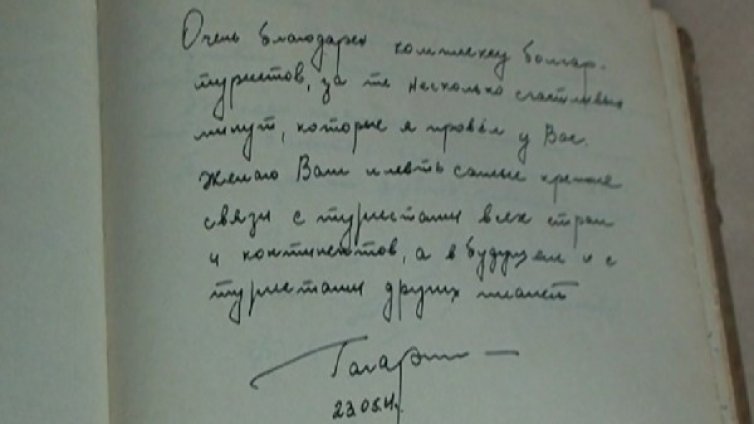 Очень благодарен комплексу болгар.
туристов, за те несколько счастливых
минут, которые я провёл у Вас.
Желаю Вам иметь самые крепкие
связи с туристами всех стран
и континентов, а в будущем и с
туристами других планет
Гагарин
23.05.